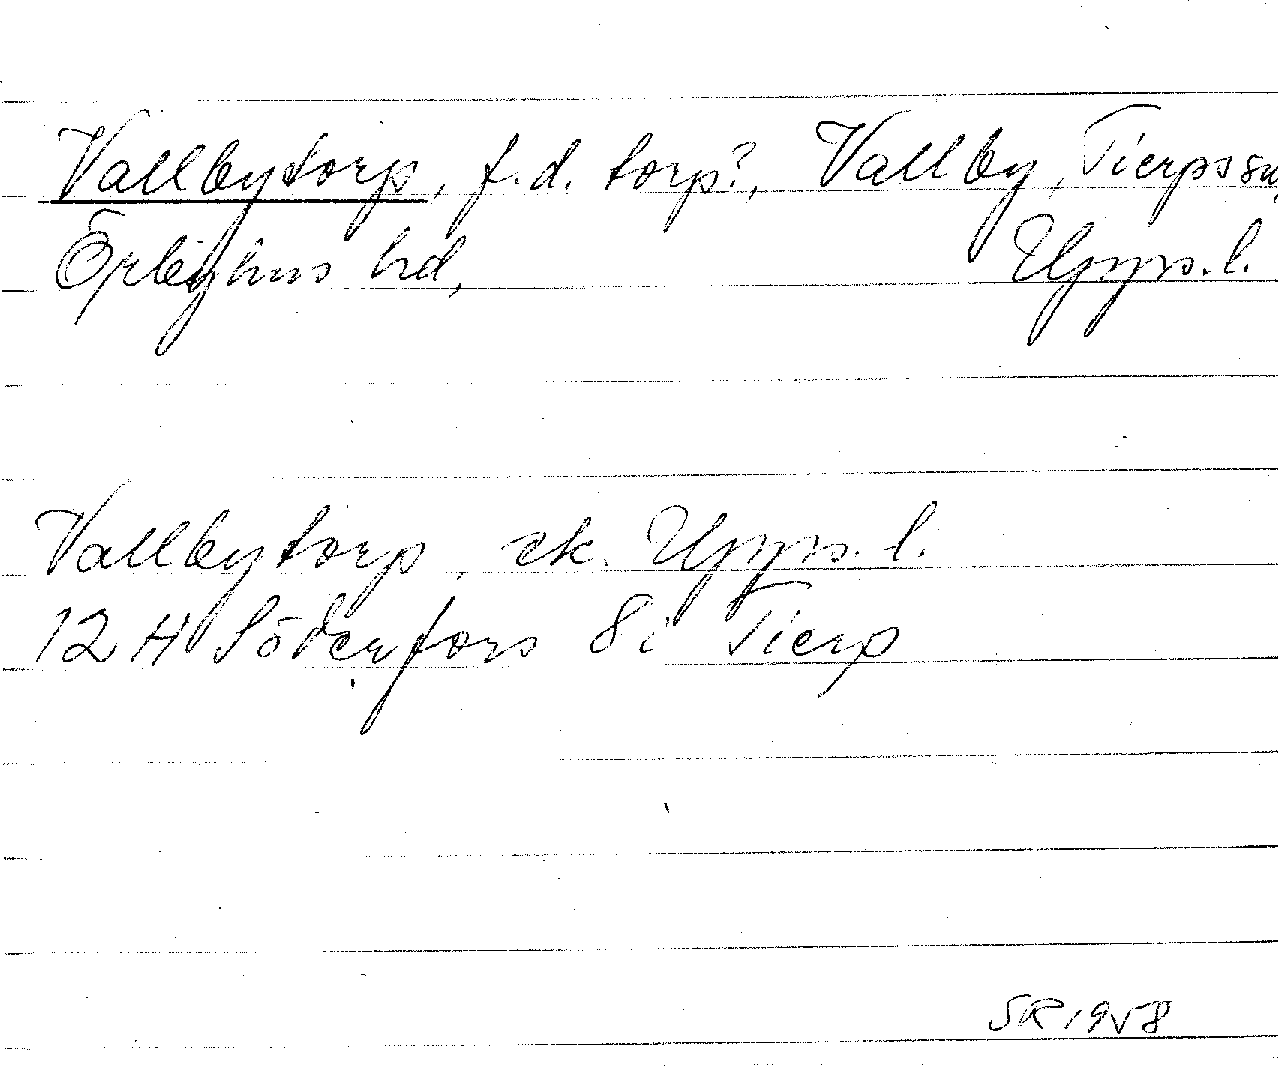 Vallbytorp, f.d. torp?, Vallby, Tierps sn,
Örbyhus hd, Upps. l.
Vallbytorp, ek. Upps. l.
12 H Söderfors 8i Tierp
SR 1958